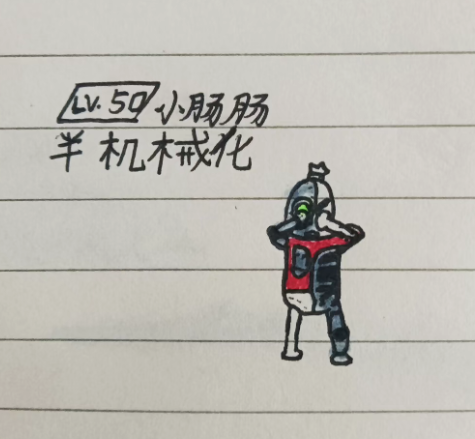 LV.50 小肠肠
半机械化